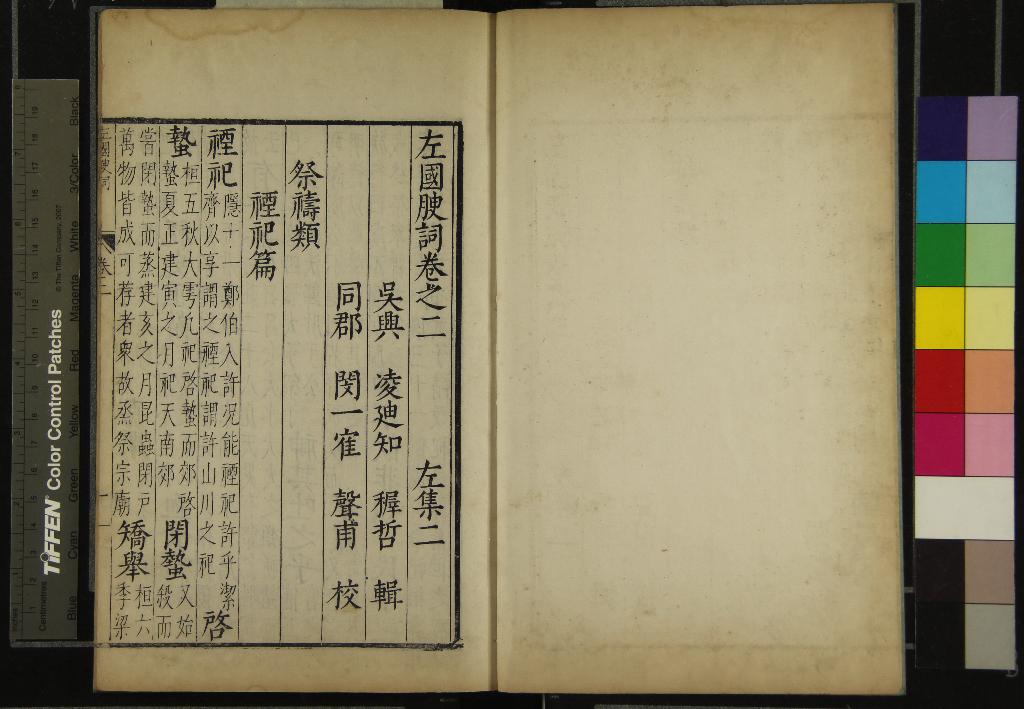 左國腴詞卷之二 左集二
吳興 凌迪知 穉哲 輯
同郡 閔一寉 聲甫 校
祭禱類
禋祀篇
禋祀 隱十一鄭伯入許況能禋祀許乎潔
齊以享謂之禋祀謂許山川之祀 啓
蟄 桓五秋大雩凡祀啓蟄而郊啓
蟄夏正建寅之月祀天南郊 閉蟄 又始殺而
嘗閉蟄而蒸建亥之月昆蟲閉戶
萬物皆成可荐者衆故烝祭宗廟 矯舉 桓六季梁
左國腴詞 卷二 一
TIFFEN Color Control Patches
© The Tiffen Company, 2007
Blue Cyan Green Yellow Red Magenta White 3/Color Black
Centimetres
Inches